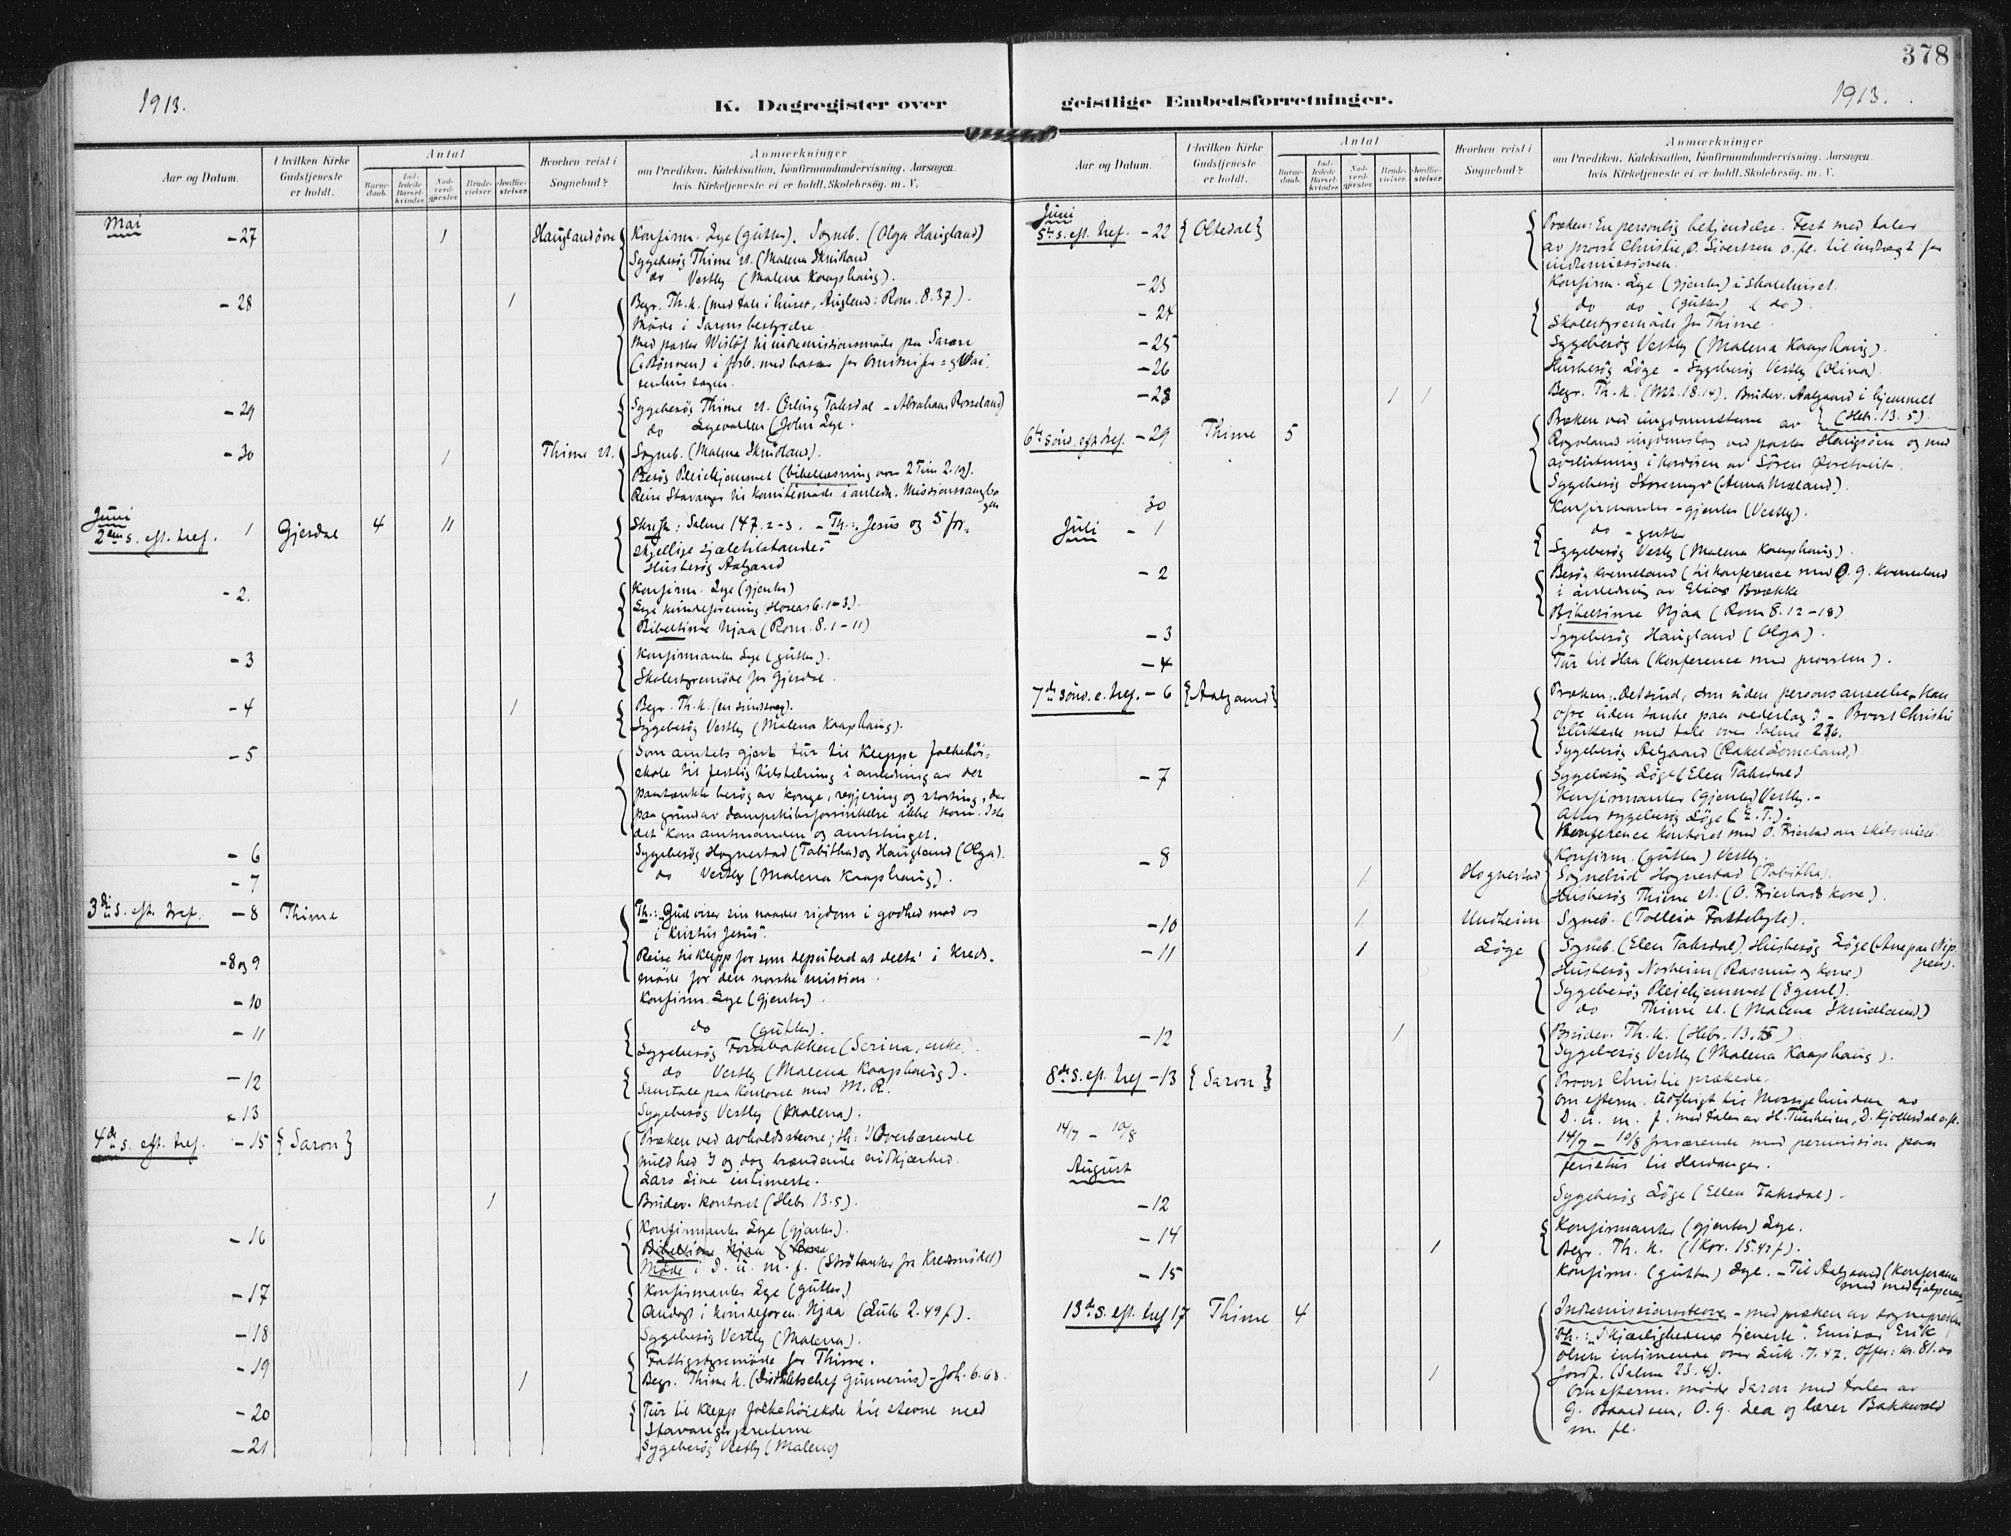 378
1913.
K. Dagregister over
geistlige Embedsforretninger.
1913.
Aar og Datum.
I hvilken Kirke Gudstjeneste er holdt.
Antal
Barne-daab.
Ind-ledede Barsel-kvinder.
Nad-verd-gjæster.
Brude-vielser.
Jordfæ-stelser.
Hvorhen reist i Sognebud?
Anmærkninger
om Prædiken, Katekisation, Konfirmandundervisning, Aarsagen,
hvis Kirketjeneste ei er holdt, Skolebesøg, m. V.
Mai
- 27 1 Hauglandsøre Konfirm. Lye (gutter). Sogneb. (Olga Haugland)
Sygebesøg Thime st. (Malena Skudland
do Vestly (Malena Kaaphaug).
- 28 1 Begr. Th. k. (med tale i huset, Augland: Rom. 8.37).
Møde i Sarons bestyrelse.
Med pastor Wisløf til indremissionsmøde paa Saron
- 29 Sygebesøg Thime st. (Erling Taksdal - Abraham Rosseland)
do Lyevolden (John Lye.
- 30 1 Thime st. Sogneb. (Malena Skudland).
Besøg Pleiehjemmet (bibellæsning over 2 Tim 2.19).
Reise Stavanger til komitemøde i anledn. Missionssangbo
gen
Juni
2den s. eft. tref. 1 Gjesdal 4 11 Skrift: Salme 147.2-3. - Th.: "Jesus og 5 for-
skjellige sjæletilstande"
Husbesøg Aalgaard
- 2. Konfirm. Lye (gjenter)
Lye kvindeforening (Hoseas 6.1-3).
Bibeltime Njaa (Rom. 8.1-11)
- 3 Konfirmanter Lye (gutter).
Skolestyremøde for Gjesdal.
- 4 1 Begr. Th. k. (en sindssyg).
Sygebesøg Vestly (Malena Kaaphaug).
- 5 Som amtets gjest tur til Kleppe folkehøi-
skole til festlig tilstelning i anledning av det
paatænkte besøg av konge, regjering og storting, der
paa grund av dampskibsforsinkelse ikke kom. I ste
det kom amtmanden og amtstinget.
- 6 Sygebesøg Hognestad (Tabitha) og Haugland (Olga).
- 7 do Vestly (Malena Kaaphaug).
3die s. eft. tref. - 8 Thime Th.: "Gud viser sin naades rigdom i godhed mod os
i Kristus Jesus".
- 8 og 9 Reise til Klepp for som deputerad at delta i Kreds-
møde for den norske mission.
- 10 Konfirm. Lye (gjenter).
- 11 do (gutter).
Sygebesøg Fossbakken (Serina, enke).
- 12 do Vestly (Malena Kaaphaug).
Samtale paa kontoret med M. R.
- 13 Sygebesøg Vestly (Malena).
4de s. eft. tref. - 15 { Saron } Præken ved avholdsstevne; Th: "Overbærende
mildhed og dog brændende nidkjærhed.
Lars Line intimerte.
1 Brudev. kontoret (Hebr. 13.5).
- 16 Konfirmanter Lye (gjenter).
Bibeltime Njaa
Møde i D. u. m. f. (Strøtanker fra Kredsmødet)
- 17 Konfirmanter Lye (gutter)
Andagt i kvindeforen. Njaa (Luk 2.49 f).
- 18 Sygebesøg Vestly (Malena).
- 19 Fattigstyremøde for Thime.
1 Begr. Thime k. (Distriktschef Gunnerius) - Joh. 6.68.
- 20 Tur til Klepp folkehøiskole til stevne med
Stavanger presterne
- 21 Sygebesøg Vestly (Malena)
Aar og Datum.
I hvilken Kirke Gudstjeneste er holdt.
Antal
Barne-daab.
Ind-ledede Barsel-kvinder.
Nad-verd-gjæster.
Brude-vielser.
Jordfæ-stelser.
Hvorhen reist i Sognebud?
Anmærkninger
om Prædiken, Katekisation, Konfirmandundervisning, Aarsagen,
hvis Kirketjeneste ei er holdt, Skolebesøg, m. V.
Juni
5te s. eft. tref. - 22 { Oltedal } Præken: En personlig bekjendelse. Fest med taler
av provst Christie, O. Sivertsen o. fl. til indtægt for
indremissionen.
- 23 Konfirm. Lye (gjenter) i skolehuset.
- 24 do do (gutter) (do).
Skolestyremøde for Thime.
- 25 Sygebesøg Vestly (Malena Kaaphaug).
- 26 Husbesøg Løge - Sygebesøg Vestly (Olina).
- 28 1 1 Begr. Th. k. (Mt. 18.14). Brudev. Aalgaard i hjemmet
(Hebr. 13.5).
6te sønd. eft. tref. - 29 Thime 5 Præken ved ungdomsstevne av
Rogaland ungdomslag ved pastor Haugsøen og med
avslutning i kordøren av Søren Øvretveit.
Sygebesøg Storemyr (Anna Mæland).
30 Konfirmanter - gjenter (Vestly).
Juli - 1 do - gutter
Sygebesøg Vestly (Malena Kaaphaug).
- 2 Besøg Kverneland (til konference med O. G. Kverneland
i anledning av Elias Brække
Bibeltime Njaa (Rom 8.12-18)
- 3 Sygebesøg Haugland (Olga).
- 4 Tur til Haa (Konference med provsten).
7de sønd. e. tref. - 6 { Aalgaard } Præken: "Det sind, som uden persons anseelse kan
ofre uden tanke paa vederlag". - Provst Christie
sluttede med tale over Salme 236.
Sygebesøg Aalgaard (Rakel Lomeland)
- 7 Sygebesøg Løge (Elen Taksdal)
Konfirmanter (gjenter) Vestly. -
Atter sygebesøg Løge (E. T.).
Konference kontoret med O. Frestad om skilsmisse
- 8 Konfirm. (gutter) Vestly.
1 Hognestad Sognebud Hognestad (Tabitha).
Husbesøg Thime st. (O. Frestads kone).
- 10 1 Undheim Sogneb. (Tolleiv Fattebyte).
- 11 1 Løge Sogneb. (Elen Taksdal). Husbesøg Løge (Ane paa Nip
pen).
Husbesøg Norheim (Rasmus og kone)
Sygebesøg Pleiehjemmet (8 gml).
do Thime st. (Malena Skudland)
- 12 1 Brudev. Th. k. (Hebr. 13.)
Sygebesøg Vestly (Malena Kaaphaug).
8de s. eft. tref - 13 { Saron } Provst Christie prækede.
Om efterm. Udflugt til Mossigelunden av
D. u. m. f. med taler av H. Tunheim, D. Kjosterdal o. fl.
14/7 - 10/8 14/7 - 10/8 fraværende med permission paa
ferietur til Hardanger.
August
- 12 Sygebesøg Løge (Ellen Taksdal).
- 14 Konfirmanter (gjenter) Lye.
1 Begr. Th. k. (1 Kor. 15.42 f).
- 15 Konfirm. (gutter) Lye. - Til Aalgaard (Konferance
med medhjælperne
13de s. eft. tref 17 Thime 4 Indremissionsstevne - med præken av sognepresten
Th.: "I kjærlighedens tjeneste". Emissær Erik
Olsen intimerede over Luk. 7.47. Offer: kr. 81.00
1 Jordf. (Salme 23.4).
Om efterm. møde Saron med taler av
G. Baardsen, O. G. Lea og lærer Bakkevold
m. fl.